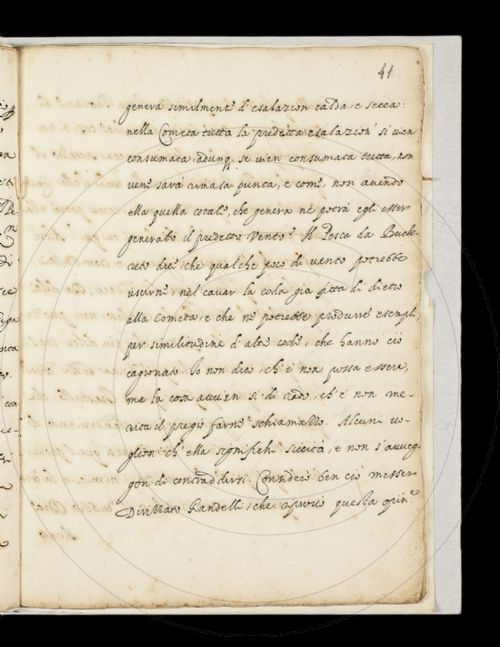 41
genera similmente d'esalazion calda, e secca:
nella Cometa tutta la predetta esalazion' si vien
consumata, adunq. se vien consumata tutta, non
ven' sarà rimasa punta, e come, non avendo
ella quella cotale, che genera ne potrà egli esser
generato il predetto Vento? M. Pesca da Buche-
reto dice, che qualche poco di vento potrebbe
uscirne, nel cavar la coda già fatta di dietro
alla Cometa, e che ne potrebbe produrre esempli
per similitudine d'altre code, che hanno ciò
cagionato. Io non dico, ch'e' non possa essere,
ma la cosa avvien sì di rado, ch'e' non me-
rita il pregio farne schiamazzo. Alcuni vo-
glion ch'ella significhi siccità, e non s'avveg-
gon di contraddirsi. Considerò ben ciò messer
Randelli, che approvò questa